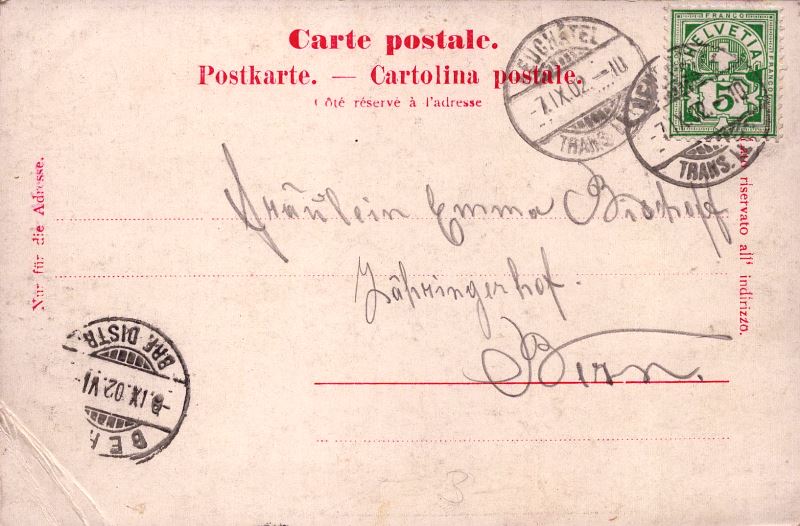 Carte postale.
Postkarte. — Cartolina postale.
Côté réservé à l'adresse
Nur für die Adresse.
riservato all' indirizzo.
FRANCO
HELVETIA
FRANCO
5
NEUCHATEL
7.IX.02.–10
TRANS.
TRANS.
Fräulein Emma Bischoff
Zähringerhof.
Bern.
BRF. DISTR.
8.IX.02.VI
BER
3